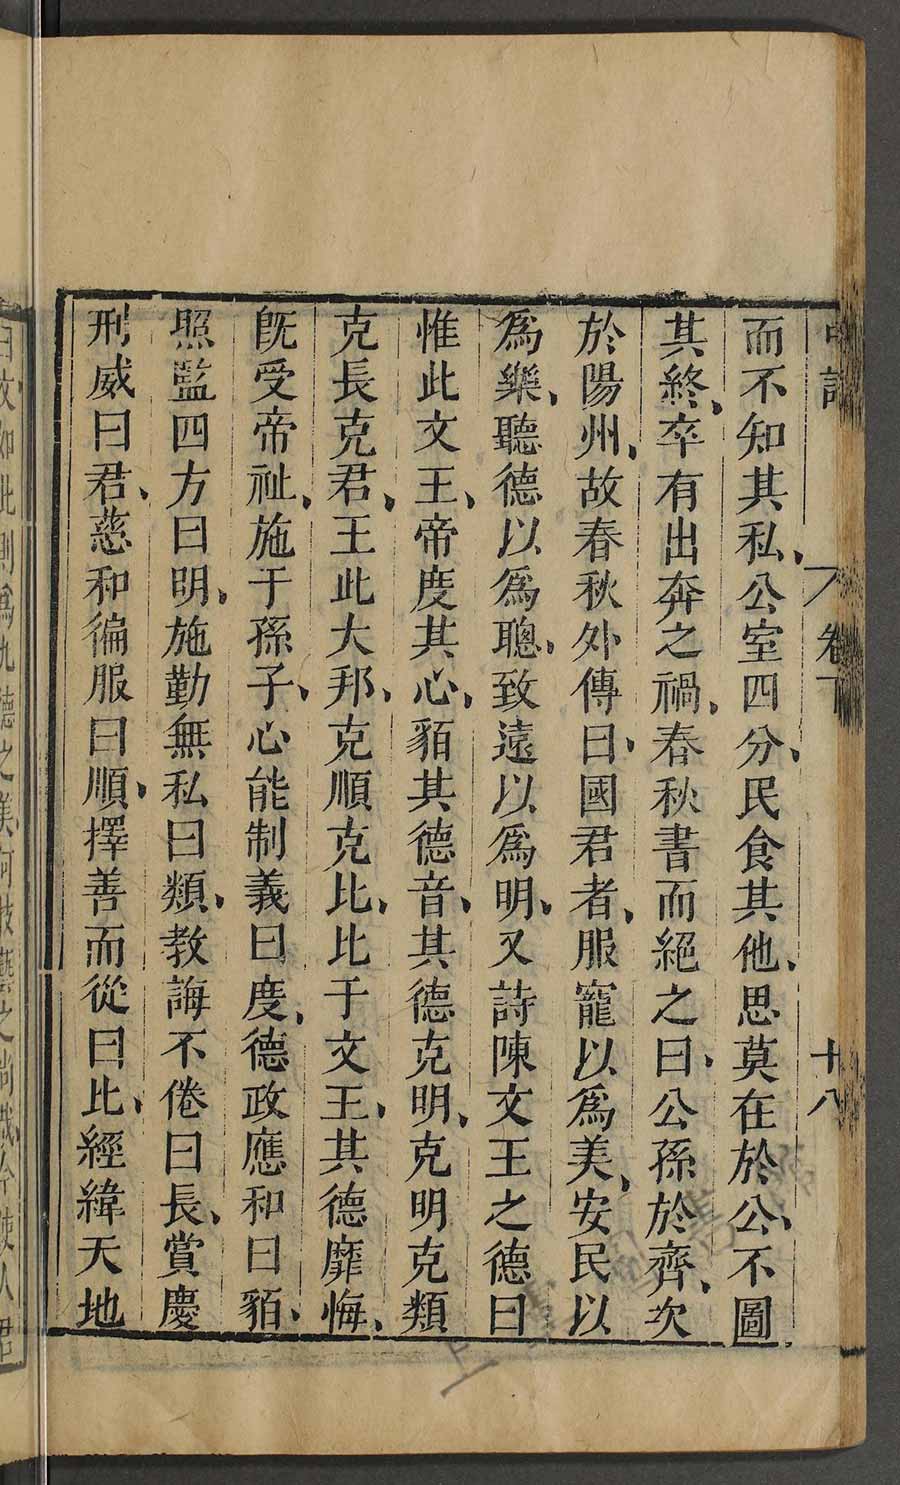 卷下
十八
而不知其私、公室四分、民食其他、思莫在於公、不圖
其終、卒有出奔之禍、春秋書而絕之曰、公孫於齊、次
於陽州、故春秋外傳曰、國君者、服寵以爲美、安民以
爲樂、聽德以爲聰、致遠以爲明、又詩陳文王之德曰
惟此文王、帝度其心、貊其德音、其德克明、克明克類
克長克君、王此大邦、克順克比、比于文王、其德靡悔、
旣受帝祉、施于孫子、心能制義曰度、德政應和曰貊、
照監四方曰明、施勤無私曰類、教誨不倦曰長、賞慶
刑威曰君、慈和徧服曰順、擇善而從曰比、經緯天地